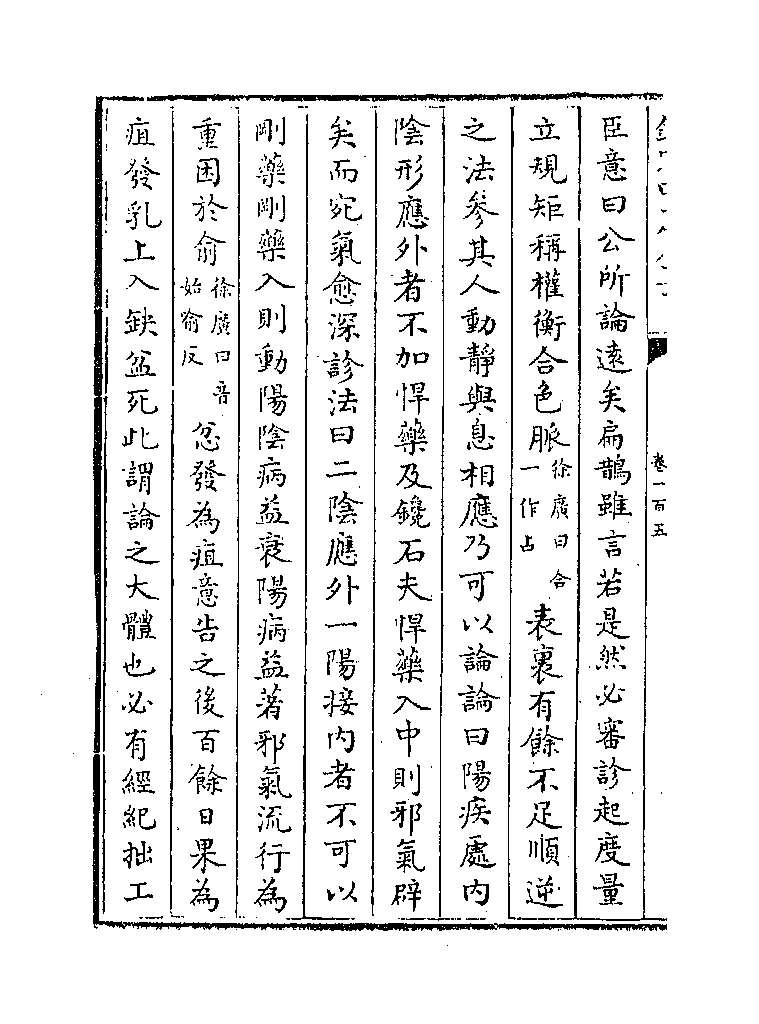 卷一百五
臣意曰公所論遠矣扁鵲雖言若是然必審診起度量
立規矩稱權衡合色脈徐廣曰合一作占表裏有餘不足順逆
之法參其人動靜與息相應乃可以論論曰陽疾處內
陰形應外者不加悍藥及鑱石夫悍藥入中則邪氣辟
矣而宛氣愈深診法曰二陰應外一陽接內者不可以
剛藥剛藥入則動陽陰病益衰陽病益著邪氣流行為
重困於俞徐廣曰音始喻反忿發為疽意告之後百餘日果為
疽發乳上入缺盆死此謂論之大體也必有經紀拙工